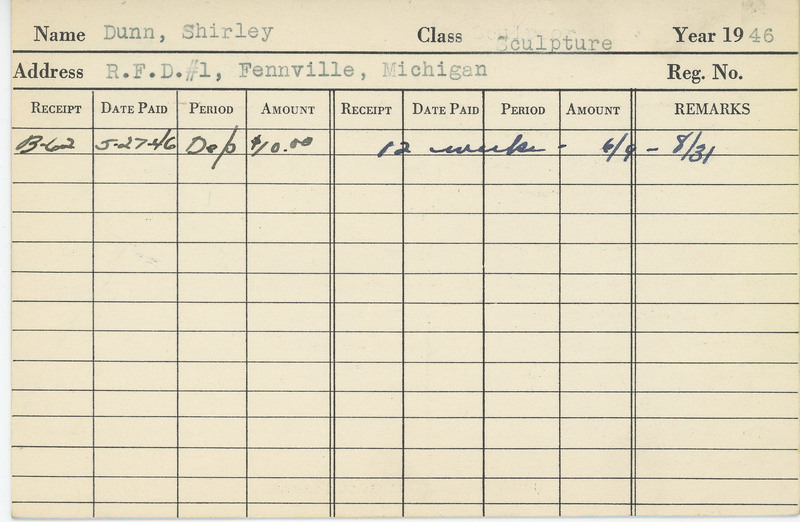 Name Dunn, Shirley Class Sculpture Year 1946
Address R.F.D.#1, Fennville, Michigan Reg. No.
RECEIPT DATE PAID PERIOD AMOUNT RECEIPT DATE PAID PERIOD AMOUNT REMARKS
B-62 5-27-46 Dep $10.00 12 weeks - 6/9 - 8/31